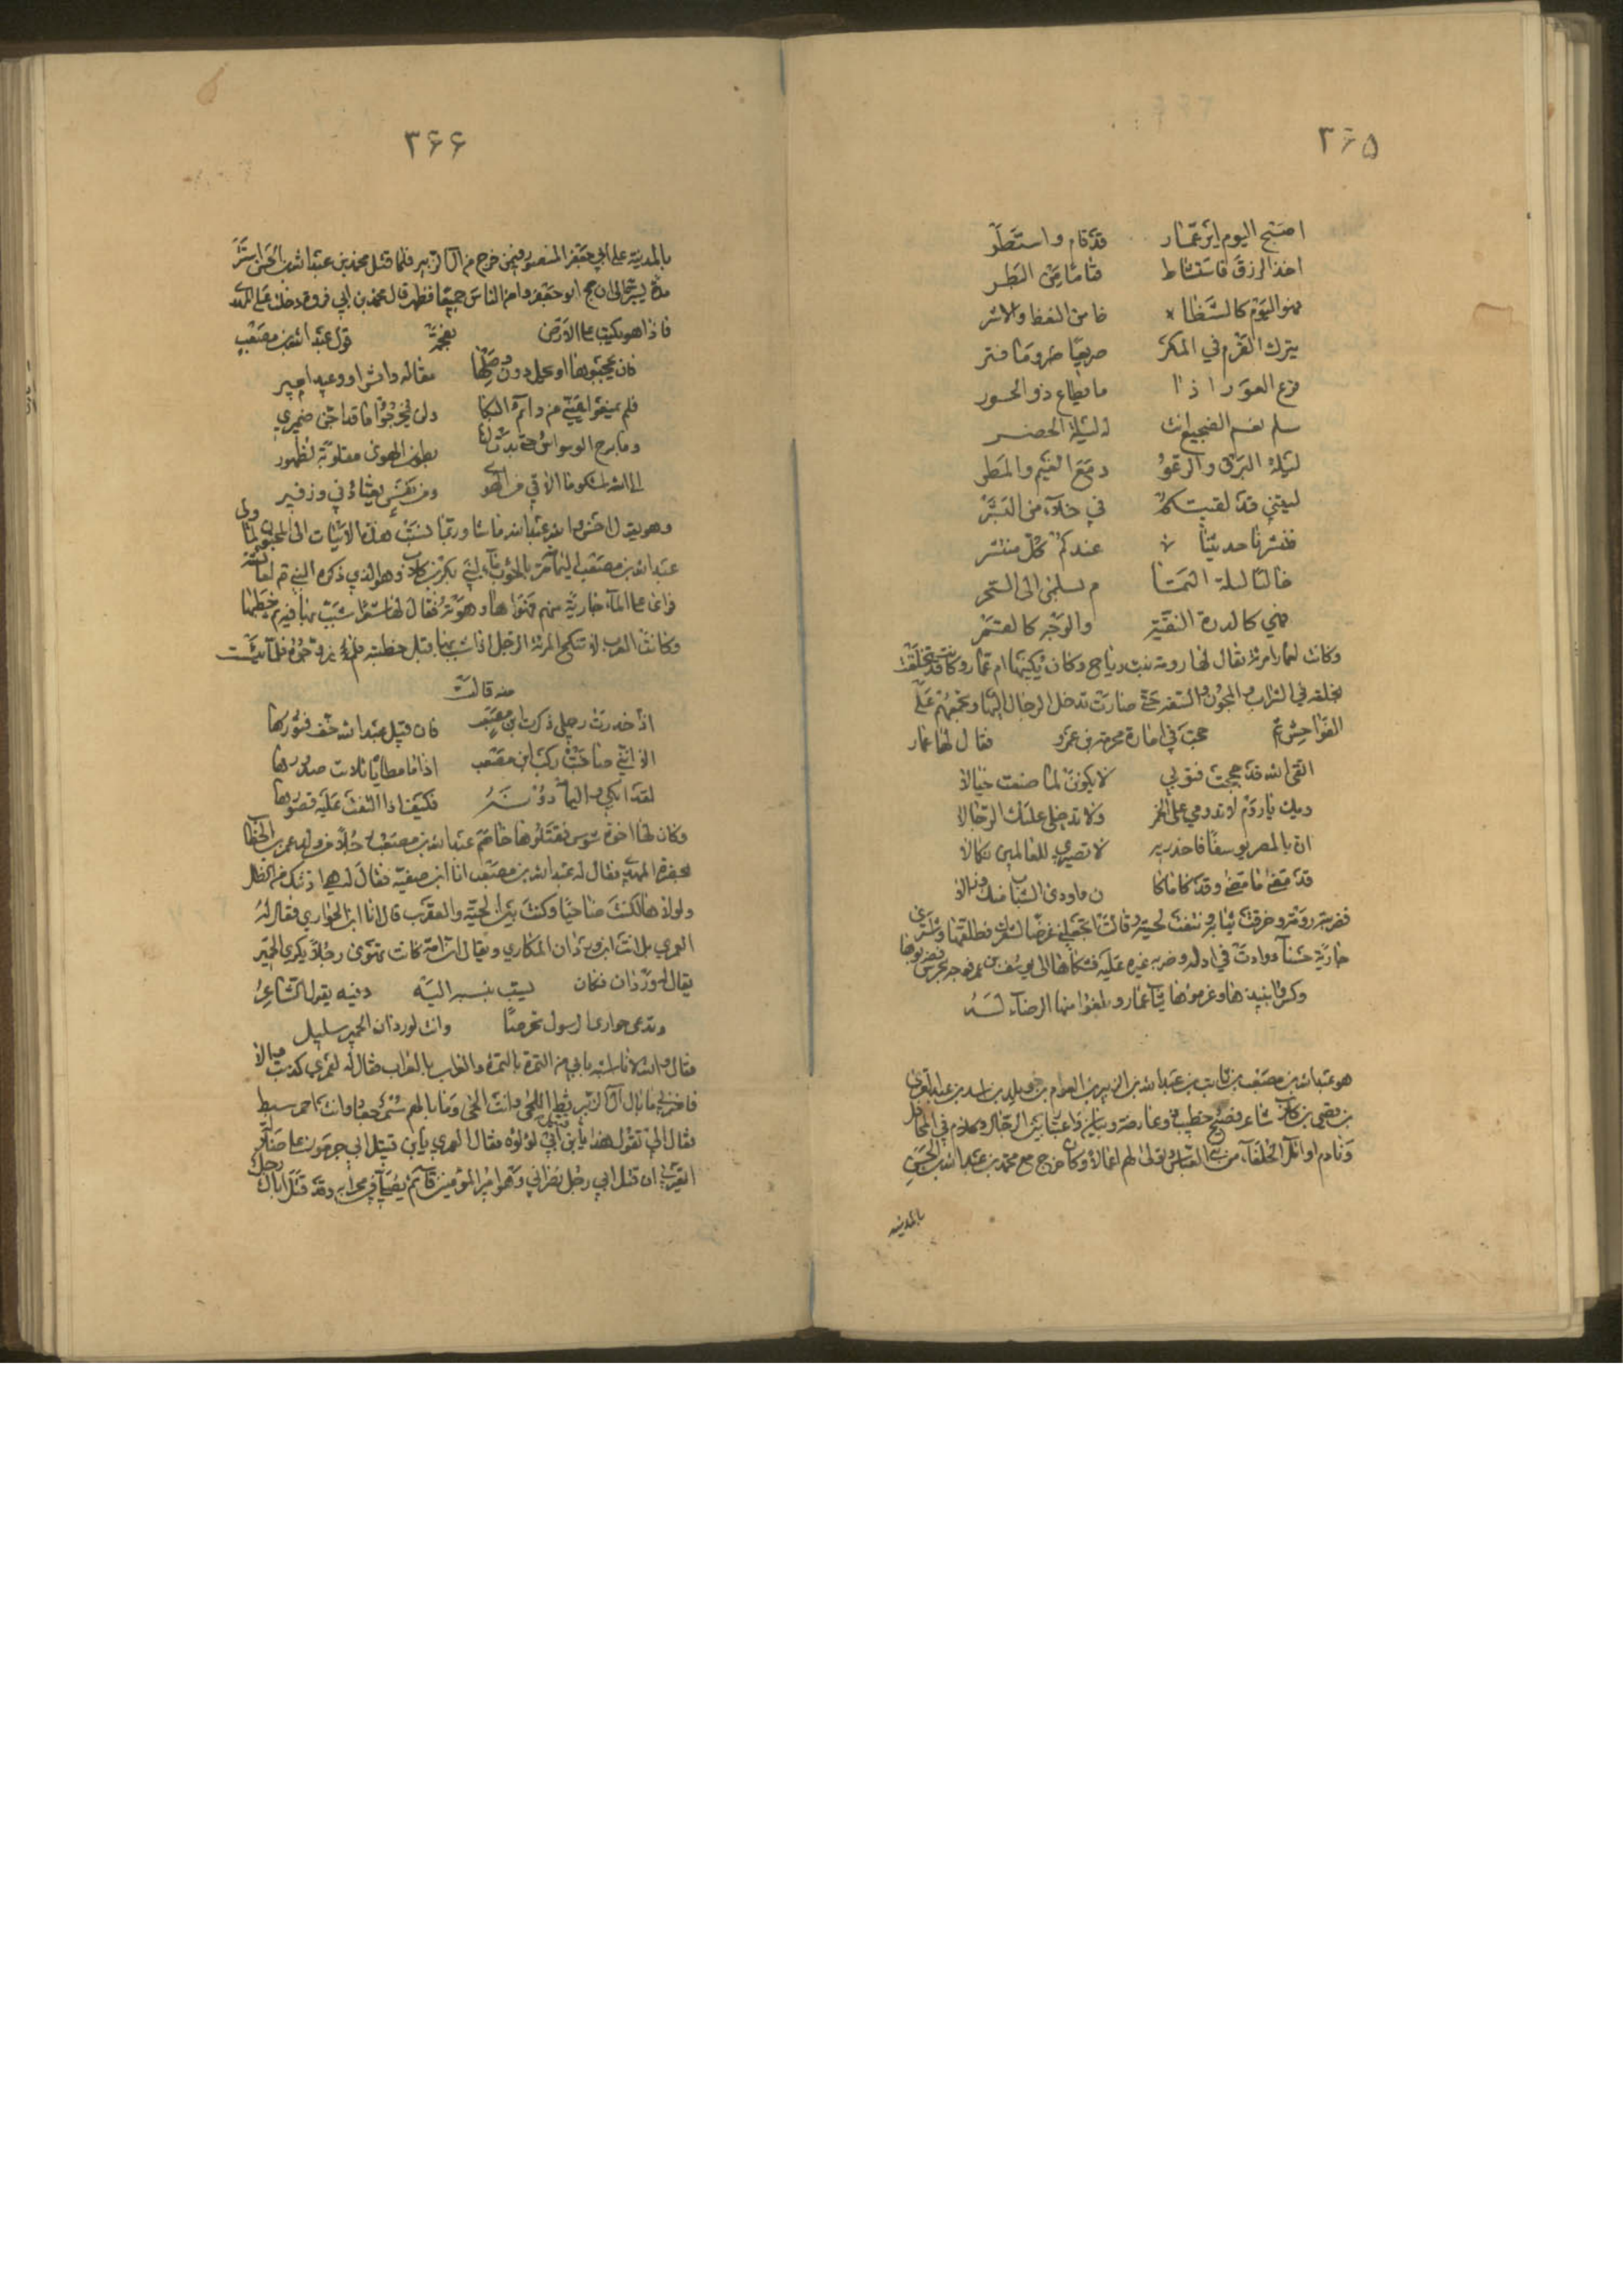 ۳۶۵
اصبح اليوم ابن عمار قد قام واستطر
اخذ الرزق فاستشاط قتاما من البطر
فهو اليوم كالشظا ظ من الغظ والاشر
يترك القرم في المكر صريعا وما فتر
قرع العود اذا ما مطاع ذو الحصور
سلم نعم الضجيع انت له ليلة الخصر
ليلة البرق والرعود مع الغيم والمطر
ليتني قد لقيتكم في خلاء من البشر
فنشرنا حديثنا عندكم كل منتشر
خاليا ليلة التمام بسلمى الى السحر
فهي كالدرة النقية والوجه كالقمر
وكانت لعمار امرأة يقال لها رومة بنت رباح وكان يكنيها ام عمار وكانت قد تخلقت
بخلقه في الشراب والمجون والسفه حتى صارت تدخل الرجال اليها وتجمعهم على
الفواحش ثم حجت في امارة عمر فقال لها عمار
اتقي الله قد حججت فتوبي لا يكونن لما صنعت خيالا
ويك يا روم لا تدومي على الخمر ولا تدخلي عليك الرجالا
ان بالمصر يوسفا فاحذريه لا تصيري للعالمين نكالا
قد مضى ما مضى وقد كان ما كان واودى الشباب منك فزالا
فضربته رومة وخرقت ثيابه ونتفت لحيته وقالت اتجعلني غرضا لشعرك فطلقها وتسرى
جارية حسناء وزادت في اذاه وضربه غيره عليه فشكاها الى يوسف بن عمر فوجه بحرس فضربوها
وكسر نبيذها وغرموها ثياب عمار وبلغوا منها الرضاء لـه
هو عبد الله بن مصعب بن ثابت بن عبد الله بن الزبير بن العوام بن خويلد بن اسد بن عبد العزى
بن قصي بن كلاب شاعر فصيح خطيب ذو عارضة وبيان واعتبار بين الرجال وكلام في المحافل
ونادم اوائل الخلفاء من بني العباس وتولى لهم اعمالا وكان خرج مع محمد بن عبد الله بن الحسن
بالمدينه
۳۶۶
بالمدينة على ابي جعفر المنصور فيمن خرج من آل الزبير فلما قتل محمد بن عبد الله بن الحسن استتر
مدة يسيرة الى ان حج ابو جعفر وامن الناس جميعا فظهر قال محمد بن ابي فروة دخلت على المهدي
فاذا هو يكتب على الارض بفحمة قول عبد الله بن مصعب
فان يحجبوها او يحل دون وصلها مقالة واش او وعيد امير
فلم يمنعوا عيني من دائم البكا ولن يخرجوا ما قد اجن ضميري
وما برح الواشون حتى بدت لنا بطون الهوى مقلوبة لظهور
الى الله اشكو ما الاقي من الهوى ومن نفس يعتادني وزفير
وهو يقول احسن والله عبد الله ما شاء وربما نسبت هذه الابيات الى المجنون ولما ولي
عبد الله بن مصعب اليمامة مر بالحوأب ماء لبني بكر بن كلاب وهو الذي ذكره النبي ثم لعائشة
فرأى على الماء جارية منهم فهويها وهويته فقال لها شعرا شبب بها فيه ثم خطبها
وكانت العرب لا تنكح المرأة الرجل اذا شبب بها قبل خطبته فلم يزوجوه فلما يئست
منه قالت
اذا خدرت رجلي ذكرت ابن مصعب فان قيل عبد الله خف فتورها
الا ليتني صاحبت ركب ابن مصعب اذا ما مطاياه اتلأبت صدورها
لقد كنت ابكي واليمامة دونه فكيف اذا التفت عليه قصورها
وكان لها اخوة شوس فقتلوها خاصم عبد الله بن مصعب رجلا من ولد عمر بن الخطاب
بحضرة المهدي فقال له عبد الله بن مصعب انا ابن صفية فقال له هي ادنتك من الظل
ولولاها لكنت ضاحيا وكنت بين الحية والعقرب قال انا ابن الحواري فقال له
العمري بل انت ابن وردان المكاري ويقال ان امه كانت تهوى رجلا يكري الحمير
يقال له وردان فكان يسب بنسبه اليه وفيه يقول الشاعر
وتدعى حواري الرسول تحرصا وانت لوردان الحمير سليل
فقال والله لانا اشبه بابي من التمرة بالتمرة والغراب بالغراب فقال له لعمري كذبت والا
فاخبرني ما بال آل الزبير ثط اللحى وانت الحى وما بالهم سمر جعاد وانت احمر سبط
فقال الي تقول هذا يا ابن قتيل ابي لؤلؤة فقال العمري يا ابن قتيل ابن جرموز على ضلالة
اتعيرني ان قتل ابي رجل نصراني وهو امير المؤمنين قائم يصلي في محرابه وقد قتل اباك رجل